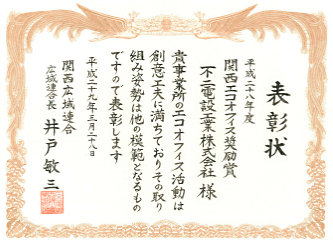 表彰状
平成二十八年度
関西エコオフィス奨励賞
不二電設工業株式会社 様
貴事業所のエコオフィス活動は
創意工夫に満ちておりその取り
組み姿勢は他の模範となるもの
ですので表彰します
平成二十九年三月二十八日
関西広域連合
広域連合長 井戸敏三